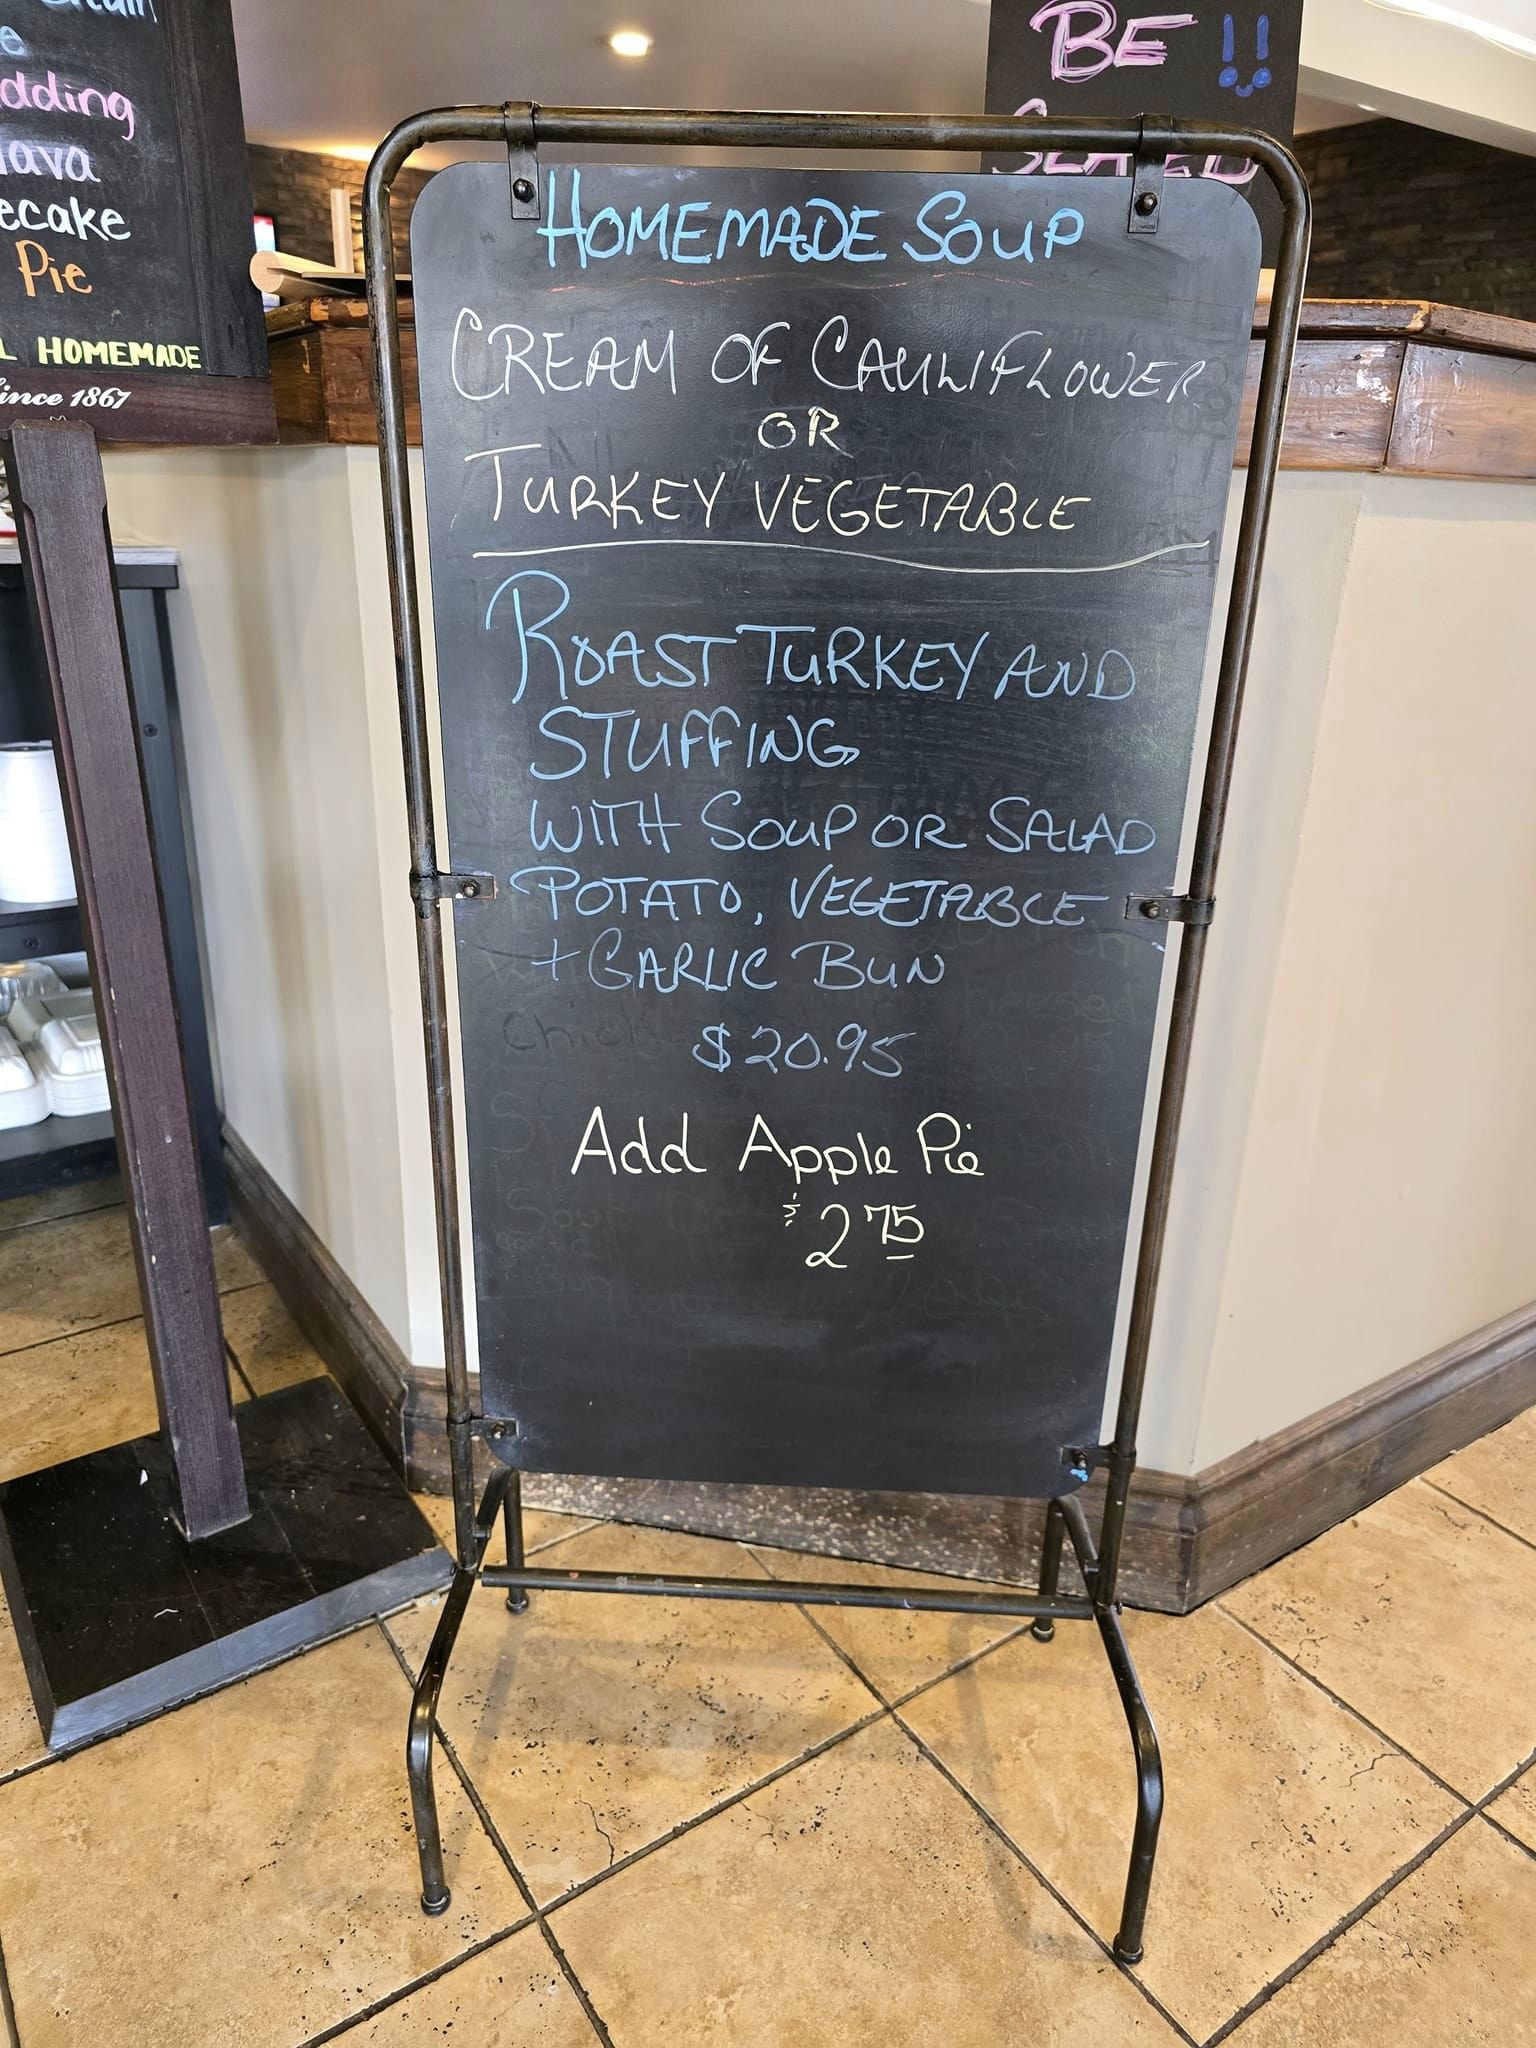 dding
ava
ecake
Pie
HOMEMADE
ince 1867
BE !!
SEATED
HOMEMADE SOUP
CREAM OF CAULIFLOWER
OR
TURKEY VEGETABLE
ROAST TURKEY AND
STUFFING
WITH SOUP OR SALAD
POTATO, VEGETABLE
+ GARLIC BUN
$20.95
Add Apple Pie
$2.75